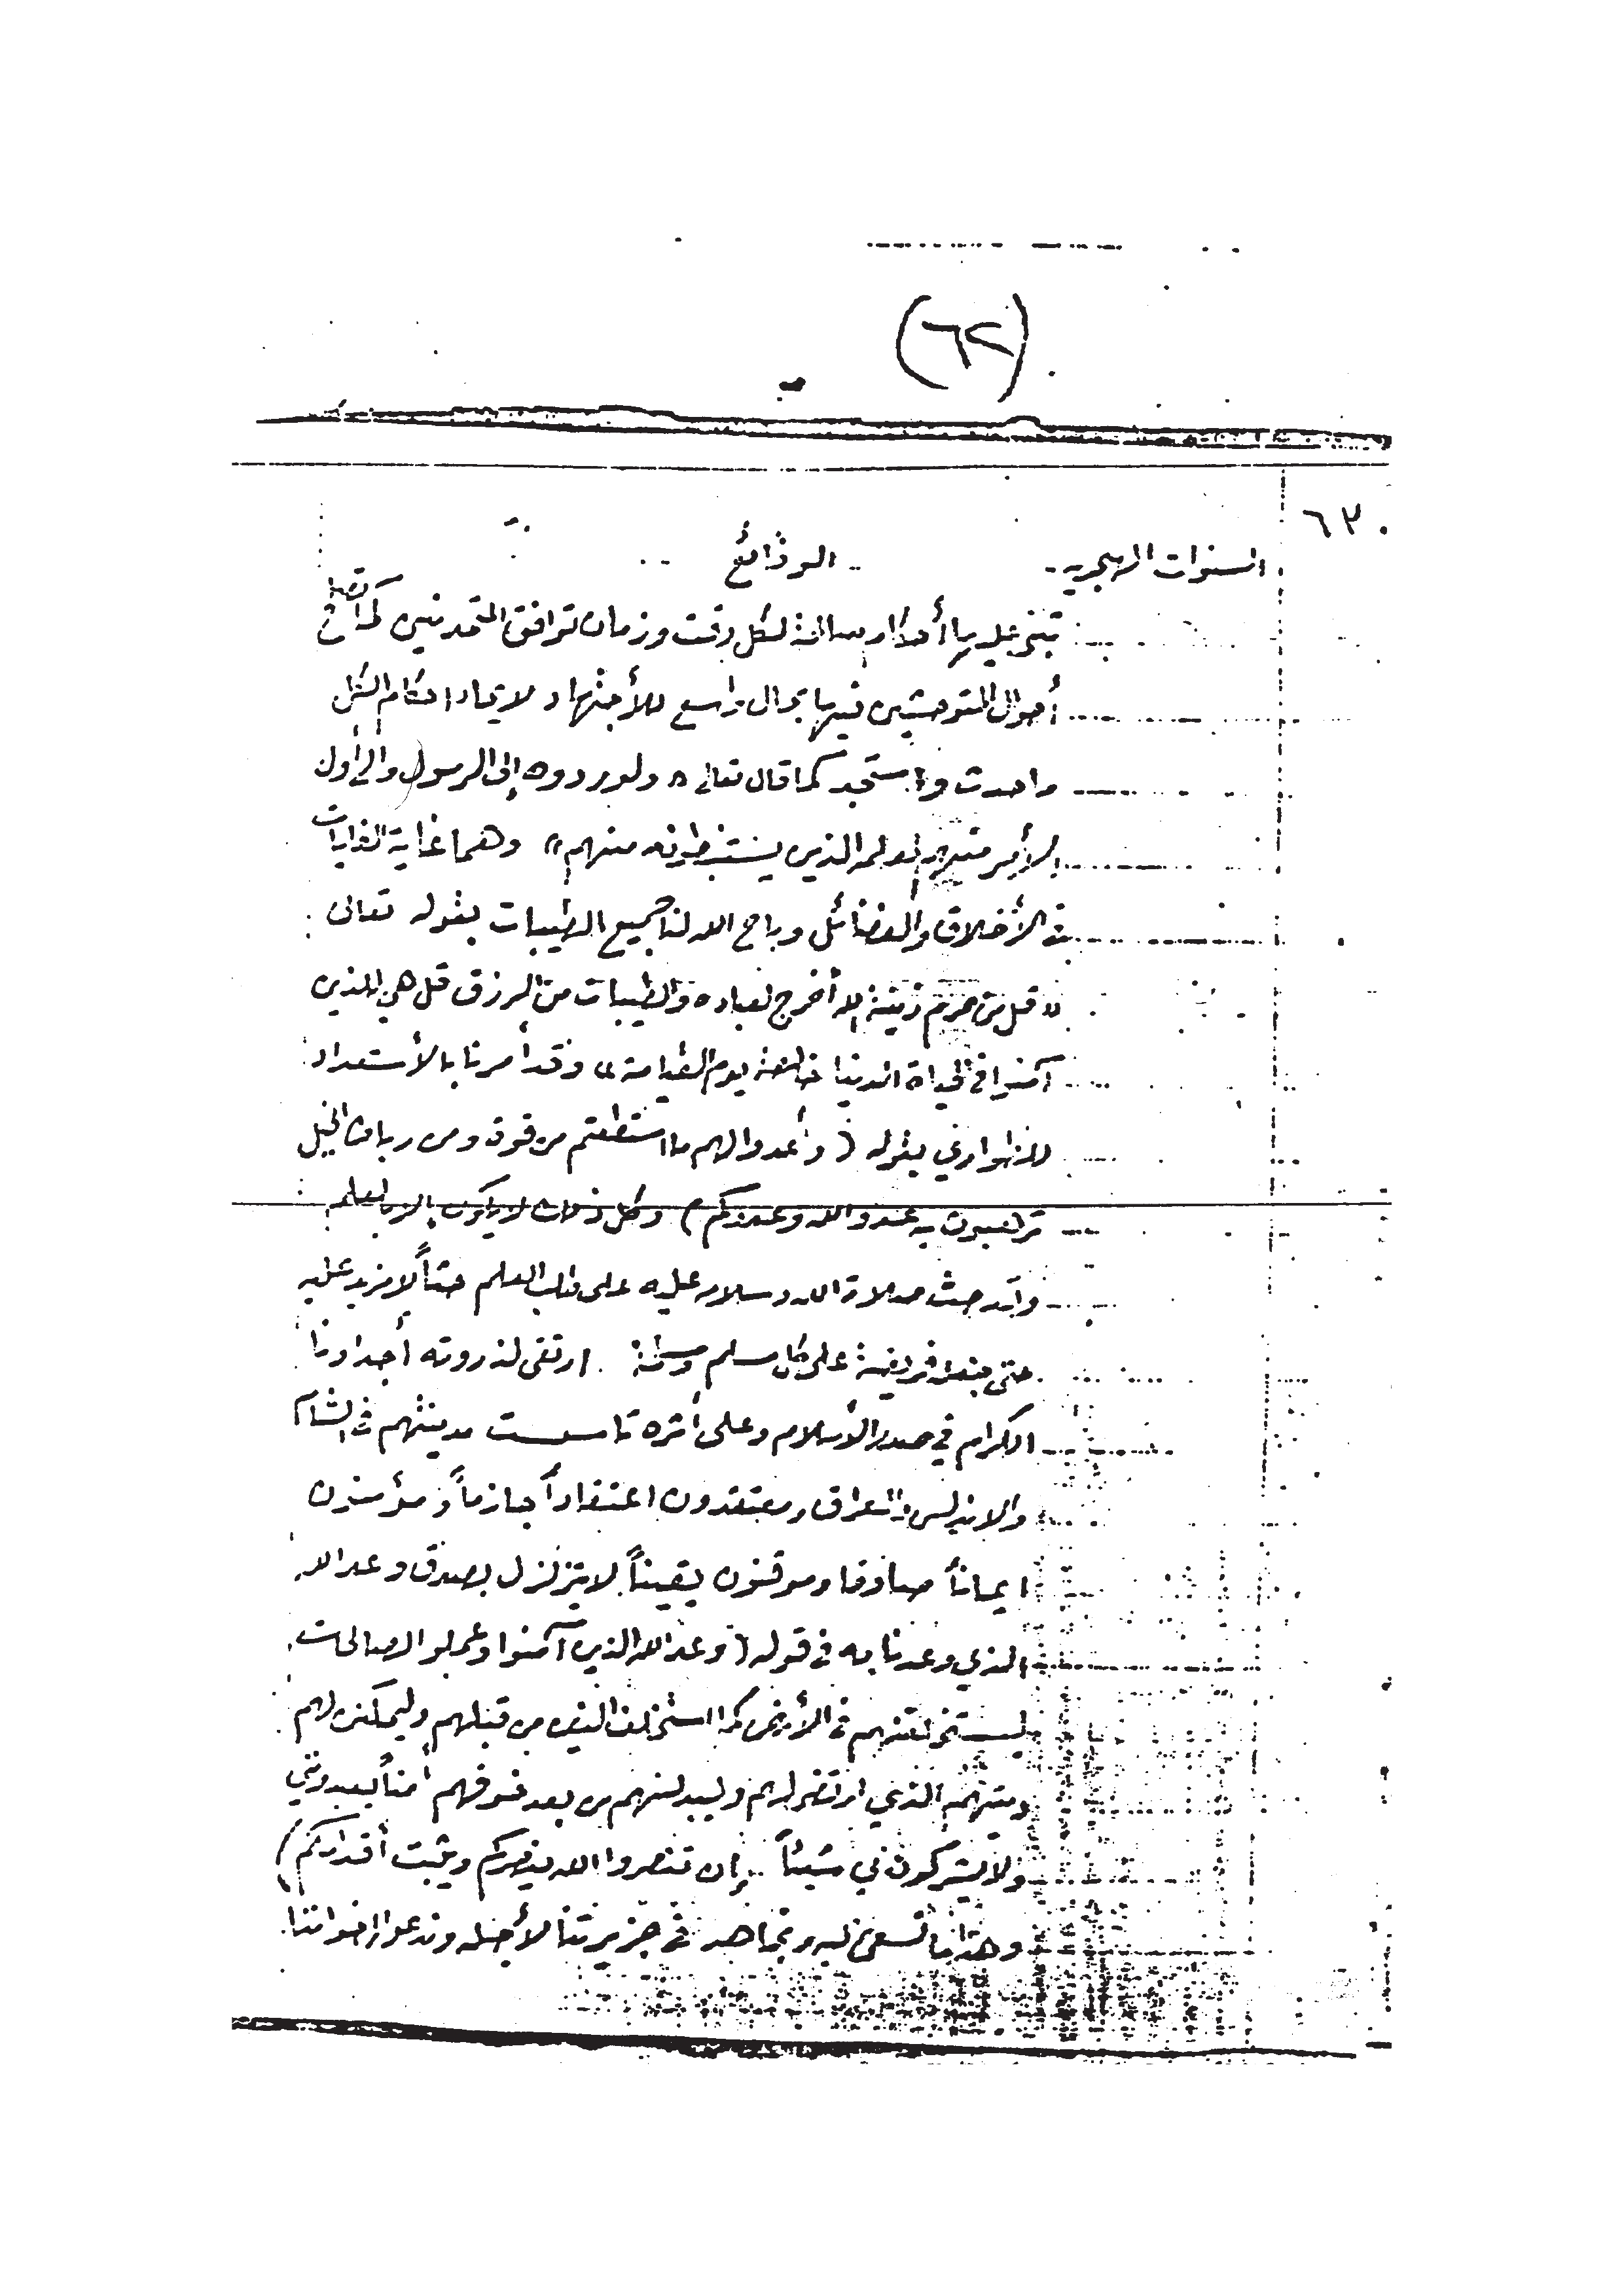 (٦٢)
٦٣٠
السنوات الهجرية الوقائع
تبنى عليها أحكام صالحة لكل وقت وزمان توافق المتمدنين كما تصلح
أحوال المتوحشين فيها مجال واسع للأجتهاد لايجاد احكام
ما حدث واستجد كما قال تعالى « ولو ردوه إلى الرسول والى أولى
الأمر منهم لعلمه الذين يستنبطونه منهم » وهما غاية الغايات
في الأخلاق والفضائل وباح الله لنا جميع الطيبات بقوله تعالى
« قل من حرم زينة الله أخرج لعباده والطيبات من الرزق قل هي للذين
آمنوا في الحياة الدنيا خالصة يوم القيامة » وقد أمرنا بالأستعداد
بقوله ( وأعدوا لهم ما استطعتم من قوة ومن رباط الخيل
ترهبون به عدو الله وعدوكم ) وكل ذلك لا يكون إلا بالعلم
وقد حث صلاة الله وسلامه عليه على طلب العلم حثاً لا مزيد عليه
حتى جعله فريضة على كل مسلم ومسلمة . ارتقى لذروته أجدادنا
الكرام في صدر الأسلام وعلى أثره تأسست مدينتهم في الشام
والاندلس والعراق ومعتقدون اعتقاداً جازماً ومؤمنون
ايماناً صادقا وموقنون يقيناً لا يتزلزل بصدق وعد الله
الذي وعدنا به في قوله ( وعد الله الذين آمنوا وعملوا الصالحات
ليستخلفنهم في الأرض كما استخلف الذين من قبلهم وليمكنن لهم
دينهم الذي ارتضى لهم وليبدلنهم من بعد خوفهم أمناً يعبدونني
ولا يشركون بي شيئاً .. إن تنصروا الله ينصركم ويثبت أقدامكم )
وهذا ما نسعى إليه ونجاهد في جزيرتنا لأجله وندعوا اخواننا